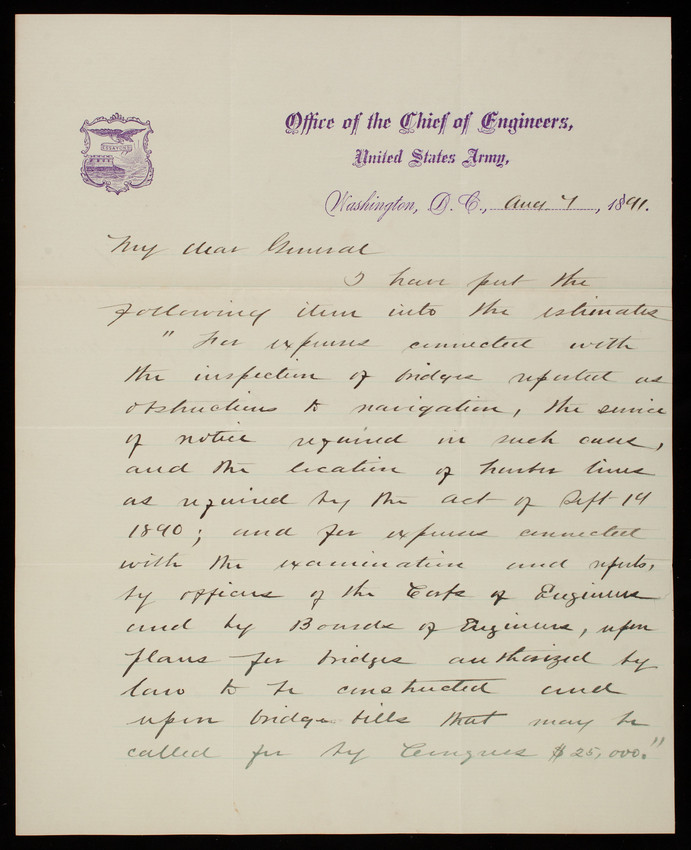 ESSAYONS
Office of the Chief of Engineers,
United States Army,
Washington, D. C., Aug 7, 1891.
My dear General
I have put the
following item into the estimates
" For expenses connected with
the inspection of bridges reported as
obstructions to navigation, the service
of notice required in such cases,
and the location of harbor lines
as required by the act of Sept 19
1890; and for expenses connected
with the examination and reports,
by officers of the Corps of Engineers
and by Boards of Engineers, upon
plans for bridges authorized by
law to be constructed and
upon bridge bills that may be
called for by Congress $25,000."